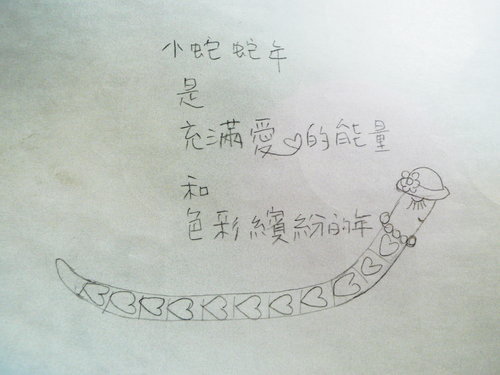 小蛇蛇年
是
充滿愛的能量
和
色彩繽紛的年